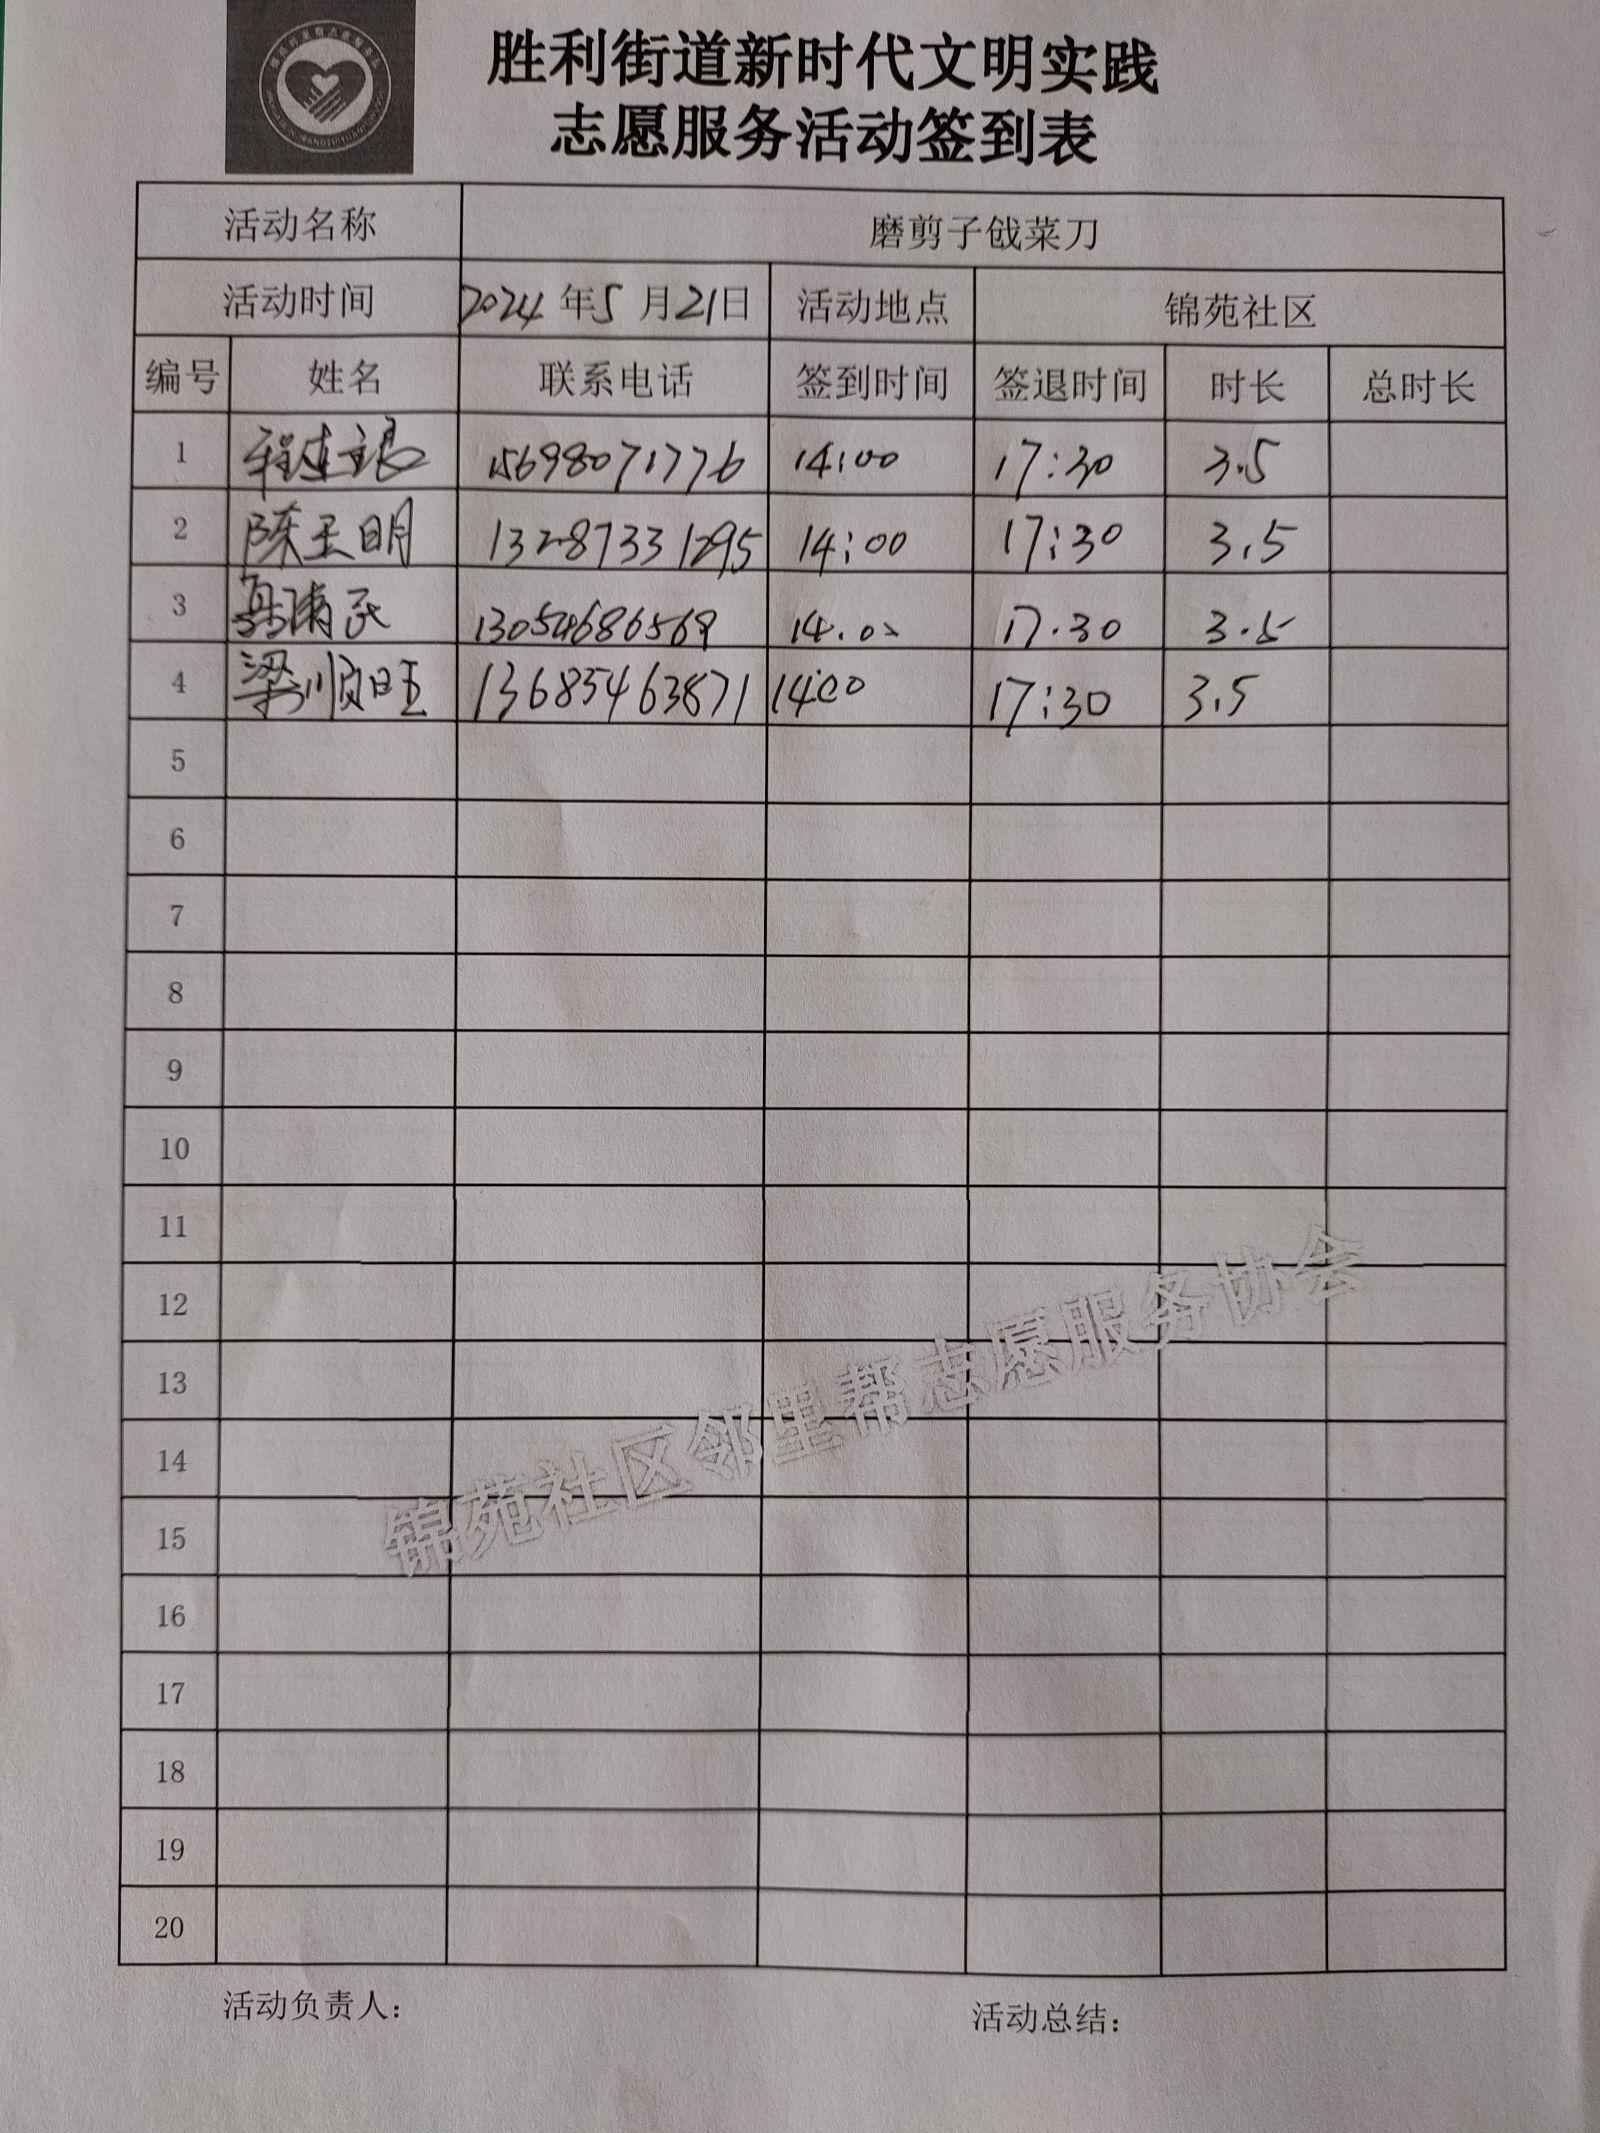 胜利街道新时代文明实践
志愿服务活动签到表
活动名称 磨剪子戗菜刀
活动时间 2024年5月21日 活动地点 锦苑社区
编号 姓名 联系电话 签到时间 签退时间 时长 总时长
1 15698071776 14:00 17:30 3.5
2 陈玉明 13287331295 14:00 17:30 3.5
3 13054686569 17.30 3.5
4 梁顺旺 13685463871 14:00 17:30 3.5
5
6
7
8
9
10
11
12
13
14
15
16
17
18
19
20
锦苑社区邻里帮志愿服务协会
活动负责人: 活动总结: